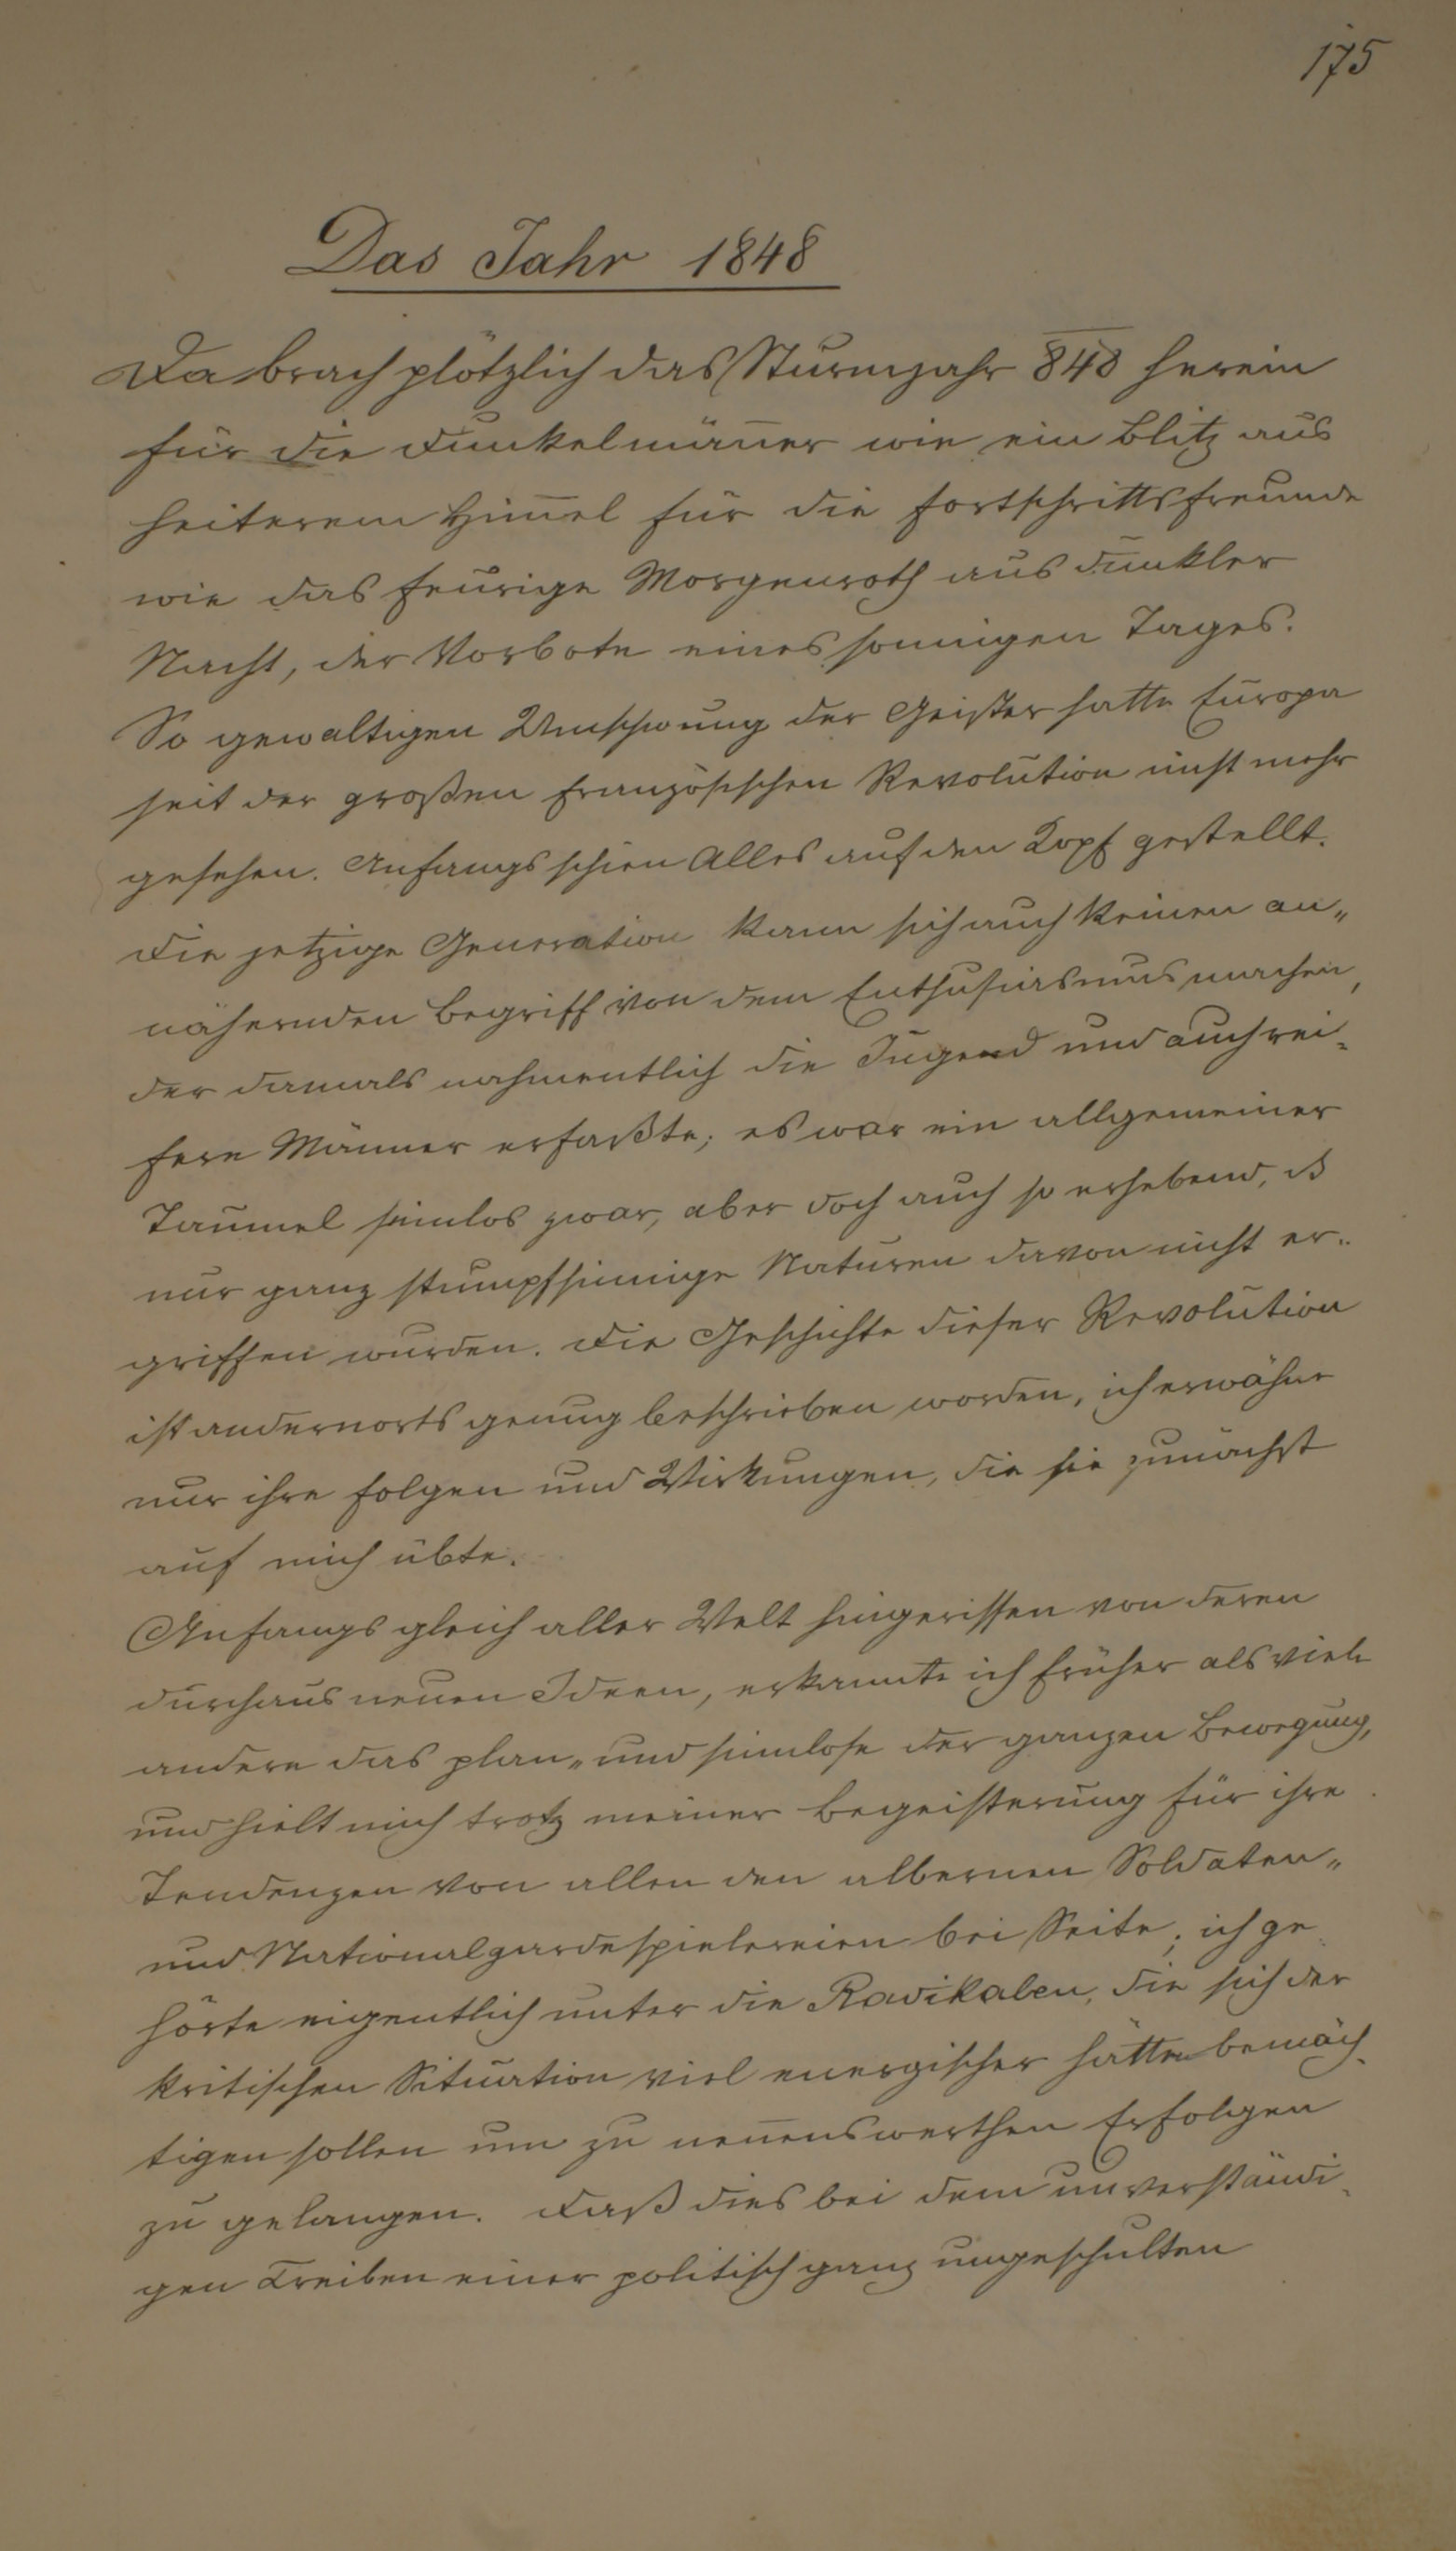 175
Das Jahr 1848
Da brach plötzlich das Sturmjahr 848 herein
für die Dunkelmäner wie ein Blitz aus
heiterem Himel für die Fortschrittsfreunde
wie das feurige Morgenroth aus dunkler
Nacht, der Vorbote eines sonnigen Tages.
So gewaltigen Umschwung der Geister hatte Europa
seit der großen französischen Revolution nicht mehr
gesehen. Anfangs schien Alles auf den Kopf gestellt.
Die jetzige Generation kann sich auch keinen an„
nähernden Begriff von dem Enthusiasmus machen,
der damals nahmentlich die Jugend und auch rei„
fere Männer erfaßte; es war ein allgemeiner
Taumel sinlos zwar, aber doch auch so erhebend, ds
nur ganz stumpfsinnige Naturen davon nicht er„
griffen wurden. Die Geschichte dieser Revolution
ist andernorts genug beschrieben worden, ich erwähne
nur ihre Folgen und Wirkungen, die sie zunächst
auf mich übte.
Anfangs gleich aller Welt hingerissen von deren
durchaus neuen Ideen, erkannte ich früher als viele
andere das plan„ und sinnlose der ganzen Bewegung,
und hielt mich trotz meiner Begeisterung für ihre
Tendenzen von allen den albernen Soldaten„
und Nationalgardespielereien bei Seite; ich ge„
hörte eigentlich unter die Radikalen, die sich der
kritischen Situation viel energischer hätten bemäch„
tigen sollen um zu nenenswerthen Erfolgen
zu gelangen. Daß dies bei dem unverständi„
gen Treiben einer politisch ganz ungeschulten